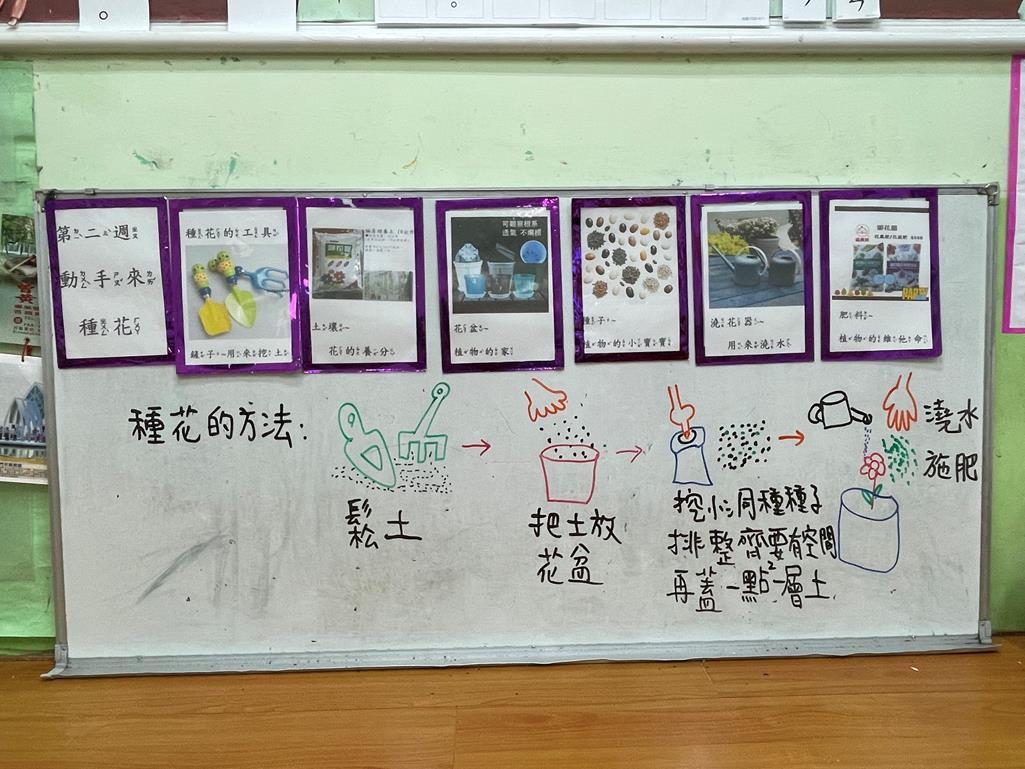 第二週
動手來
種花
種花的工具
鏟子~用來挖土
土壤~
花的養分
可觀察根系
透氣 不爛根
花盆~
植物的家
種子~
植物的小寶寶
澆花器~
用來澆水
肥料~
植物的維他命
種花的方法:
鬆土
把土放
花盆
挖小洞種種子
排整齊要有空間
再蓋一點一層土
澆水
施肥